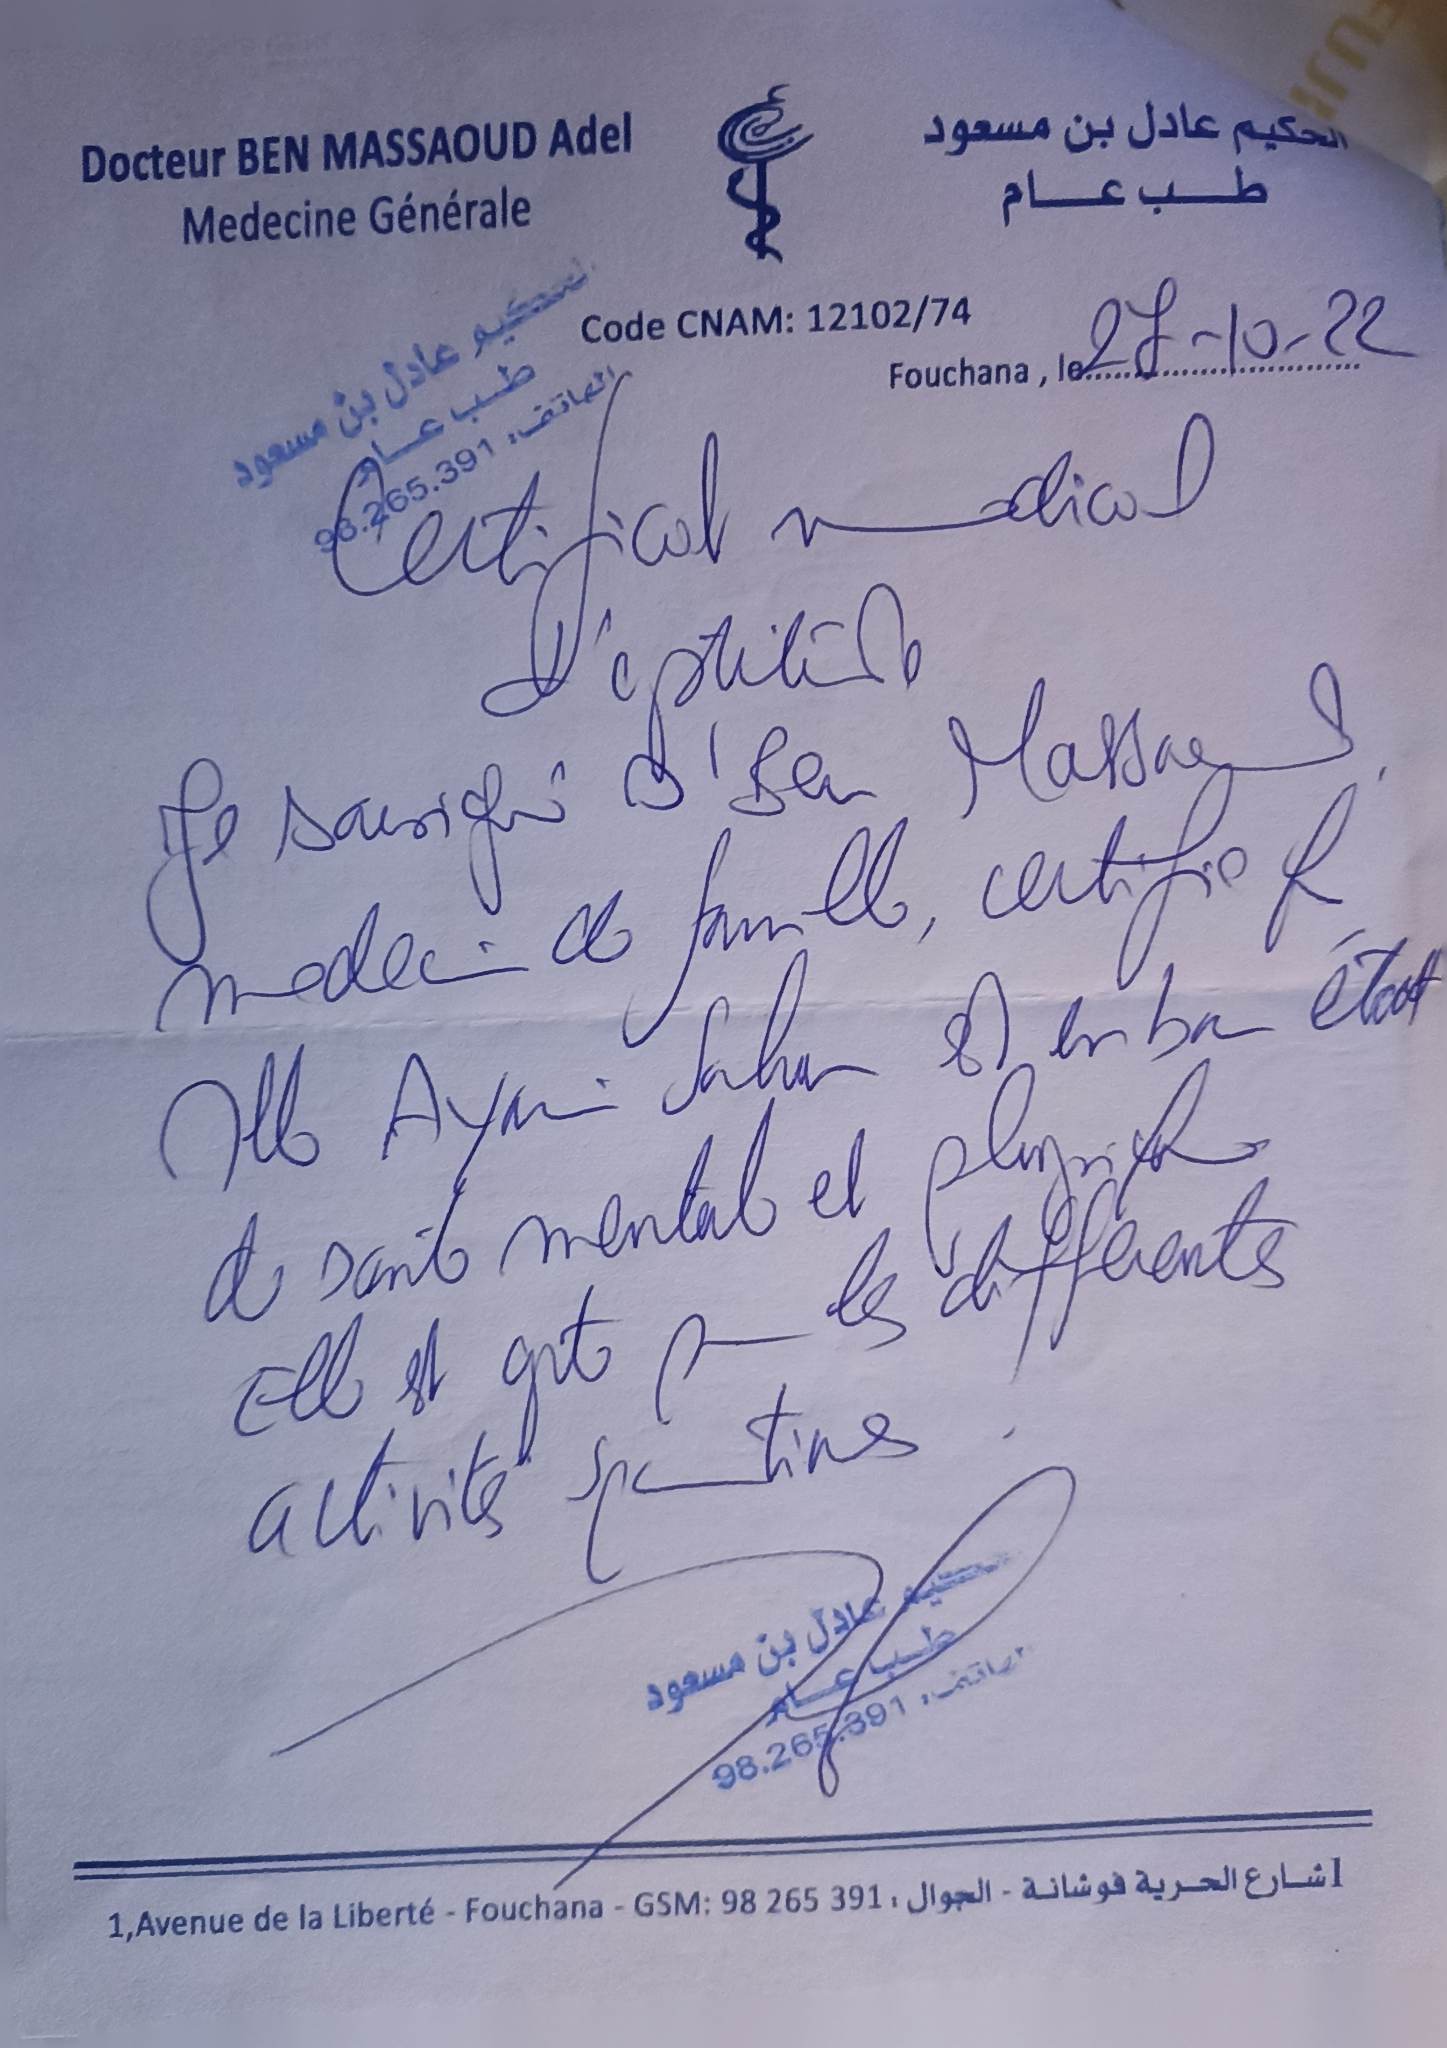 Docteur BEN MASSAOUD Adel
Medecine Générale
الحكيم عادل بن مسعود
طب عام
Code CNAM: 12102/74
Fouchana , le 27-10-22
الحكيم عادل بن مسعود
طب عام
الهاتف: 98.265.391
Certificat medical
d'aptitude
Je soussigné Dr Ben Massaoud,
medecin de famille, certifie q
Mlle Ayari est en bon état
de santé mentale et physique
Elle est apte pour les différentes
activités sportives.
الحكيم عادل بن مسعود
طب عام
الهاتف: 98.265.391
1,Avenue de la Liberté - Fouchana - GSM: 98 265 391 : 1 شارع الحرية فوشانة - الجوال